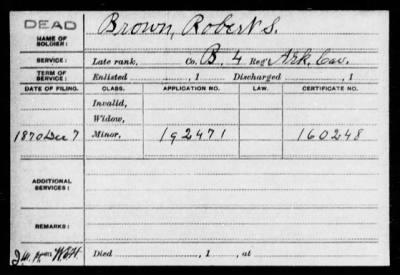 DEAD
NAME OF SOLDIER: Brown, Robert S.
SERVICE: Late rank, Co. B, 4 Reg't Ark. Cav.
TERM OF SERVICE: Enlisted , 1 Discharged , 1
DATE OF FILING. CLASS. APPLICATION NO. LAW. CERTIFICATE NO.
Invalid,
Widow,
1870 Dec 7 Minor, 192471 160248
ADDITIONAL SERVICES:
REMARKS:
Died , 1 , at